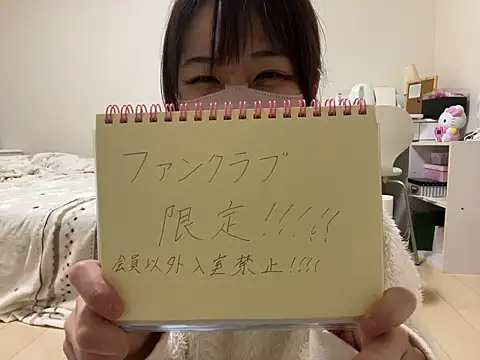 ファンクラブ
限定!!!!!
会員以外入室禁止!!!!